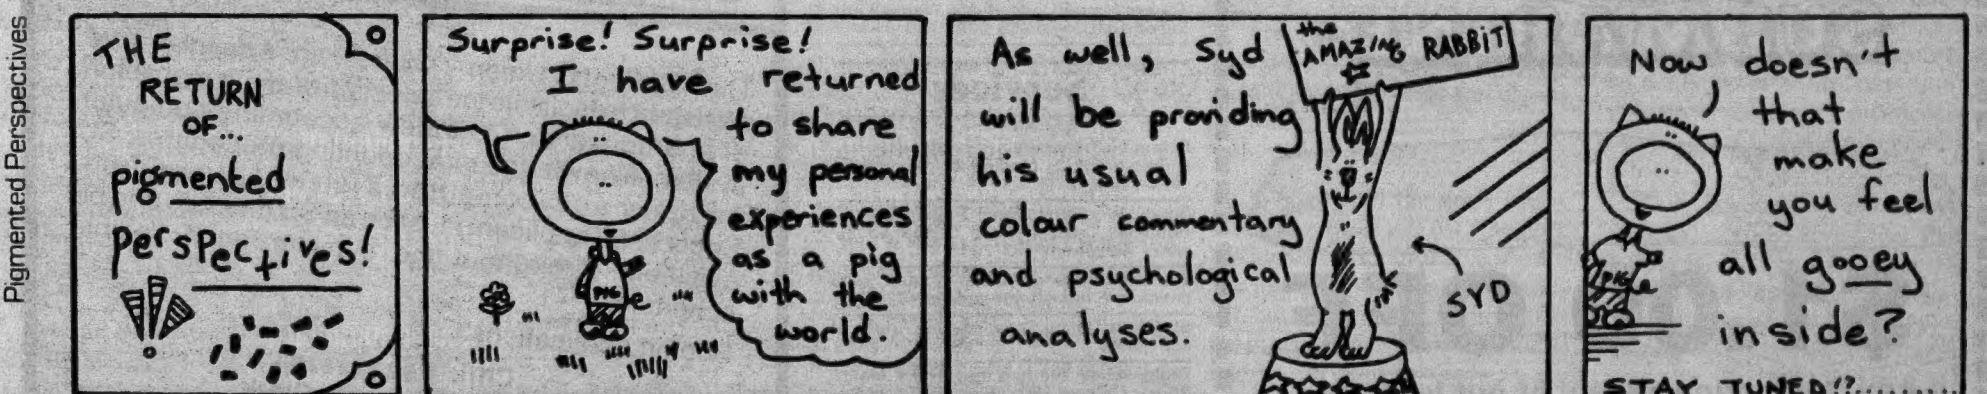 Pigmented Perspectives
THE
RETURN
OF...
pigmented
perspectives!
Surprise! Surprise!
I have returned
to share
my personal
experiences
as a pig
with the
world.
PIG
As well, Syd
will be providing
his usual
colour commentary
and psychological
analyses.
the
AMAZING RABBIT
SYD
Now doesn't
that
make
you feel
all gooey
inside?
PIG
STAY TUNED!?..........